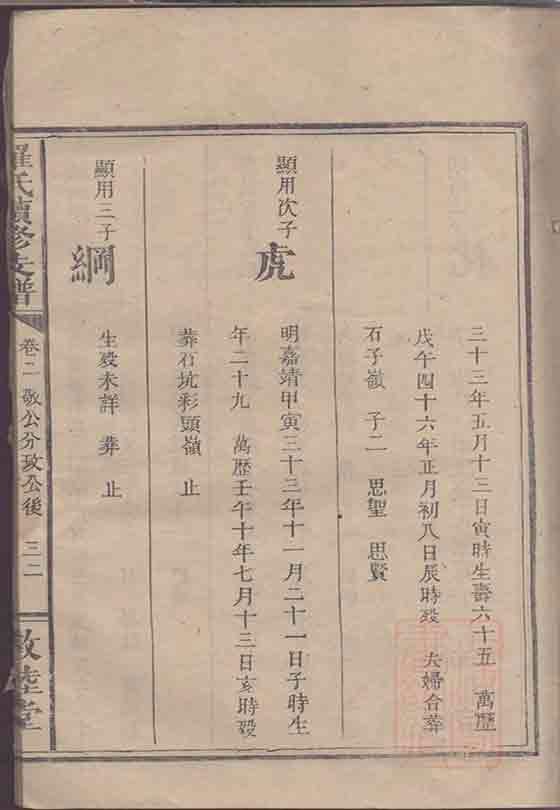 三十三年五月十三日寅時生壽六十五 萬歷
戊午四十六年正月初八日辰時歿 夫婦合葬
石子嶺 子二 思聖 思賢
顯用次子
虎
明嘉靖甲寅三十三年十一月二十一日子時生
年二十九 萬歷壬午十年七月十三日亥時歿
葬石坑彩頭嶺 止
顯用三子
綱
生歿未詳 葬 止
羅氏續修支譜
卷二 敬公分攷公後 三二
敦睦堂